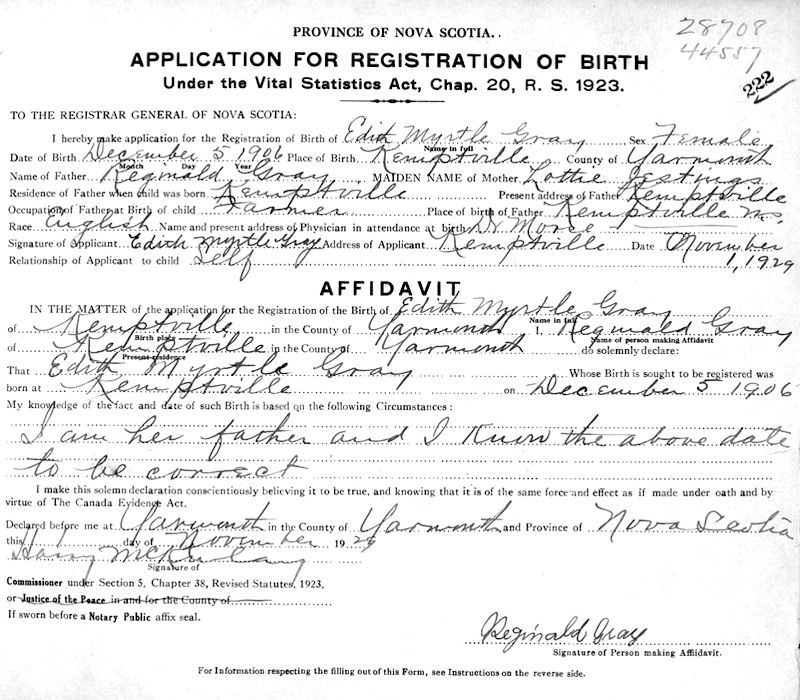 PROVINCE OF NOVA SCOTIA.
28708
44557
APPLICATION FOR REGISTRATION OF BIRTH
222
Under the Vital Statistics Act, Chap. 20, R. S. 1923.
TO THE REGISTRAR GENERAL OF NOVA SCOTIA:
I hereby make application for the Registration of Birth of Edith Myrtle Gray Sex Female
Name in full
Date of Birth December 5 1906 Place of Birth Kemptville County of Yarmouth
Month Day Year
Name of Father Reginald Gray MAIDEN NAME of Mother Lottie Jestings
Residence of Father when child was born Kemptville Present address of Father Kemptville
Occupation of Father at Birth of child Farmer Place of birth of Father Kemptville N.S.
Race English Name and present address of Physician in attendance at birth Dr Morse
Signature of Applicant Edith Myrtle Gray Address of Applicant Kemptville Date November
Relationship of Applicant to child Self 1, 1929
AFFIDAVIT
IN THE MATTER of the application for the Registration of the Birth of Edith Myrtle Gray
Name in full
of Kemptville in the County of Yarmouth I, Reginald Gray
Birth place Name of person making Affidavit
of Kemptville in the County of Yarmouth do solemnly declare:
Present residence
That Edith Myrtle Gray Whose Birth is sought to be registered was
born at Kemptville on December 5 1906
My knowledge of the fact and date of such Birth is based on the following Circumstances:
I am her father and I know the above date
to be correct
I make this solemn declaration conscientiously believing it to be true, and knowing that it is of the same force and effect as if made under oath and by
virtue of The Canada Evidence Act.
Declared before me at Yarmouth in the County of Yarmouth and Province of Nova Scotia
this day of November 1929
Harry
Signature of
Commissioner under Section 5, Chapter 38, Revised Statutes, 1923.
or Justice of the Peace in and for the County of
If sworn before a Notary Public affix seal.
Reginald Gray
Signature of Person making Affidavit.
For Information respecting the filling out of this Form, see Instructions on the reverse side.